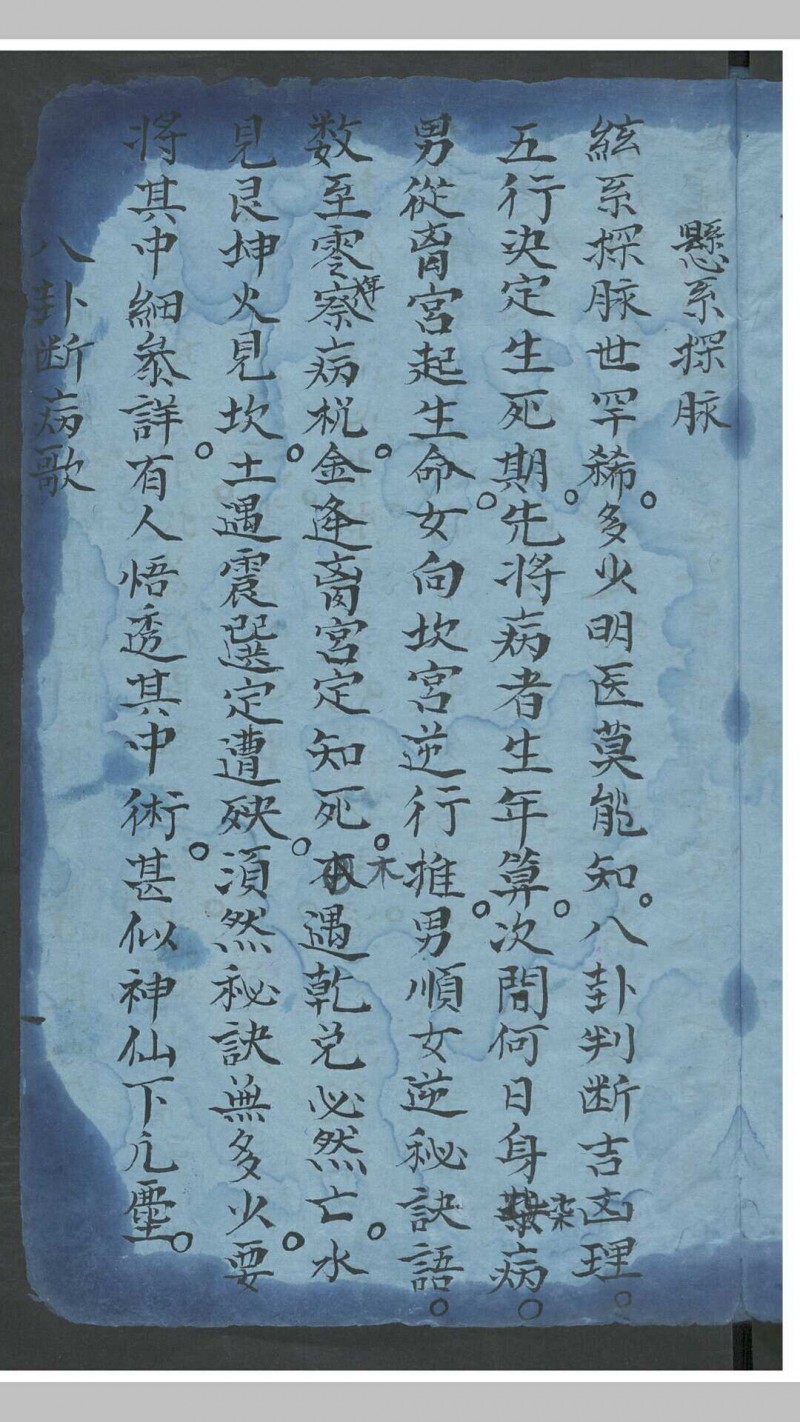 懸系探脉
絃系探脉世罕稀。多少明医莫能知。八卦判断吉凶理。
五行決定生死期。先将病者生年算。次問何日身染病。
男從离宮起生命。女向坎宮逆行推。男順女逆秘訣語。
数至零察病枕。金逢离宮定知死。木遇乾兑必然亡。水
見艮坤火見坎。土遇震巽定遭殃。須然秘訣無多少。要
将其中細叅詳。有人悟透其中術。甚似神仙下凢塵。
八卦断病歌